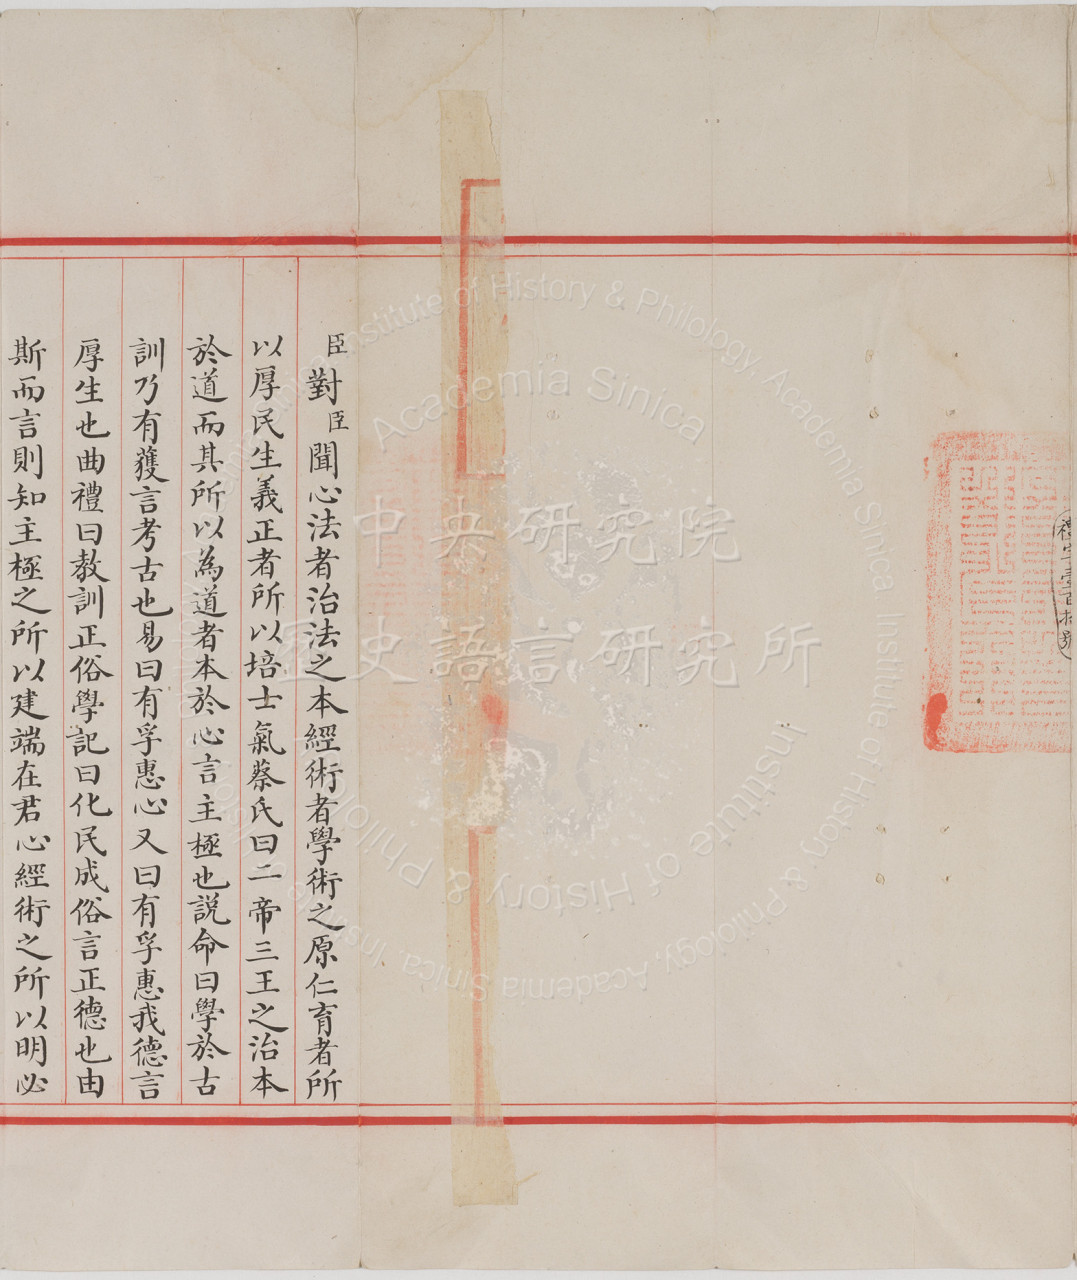 禮字壹百拾號
臣對臣聞心法者治法之本經術者學術之原仁育者所
以厚民生義正者所以培士氣蔡氏曰二帝三王之治本
於道而其所以為道者本於心言主極也說命曰學於古
訓乃有獲言考古也易曰有孚惠心又曰有孚惠我德言
厚生也曲禮曰教訓正俗學記曰化民成俗言正德也由
斯而言則知主極之所以建端在君心經術之所以明必
中央研究院
歷史語言研究所
Institute of History & Philology, Academia Sinica